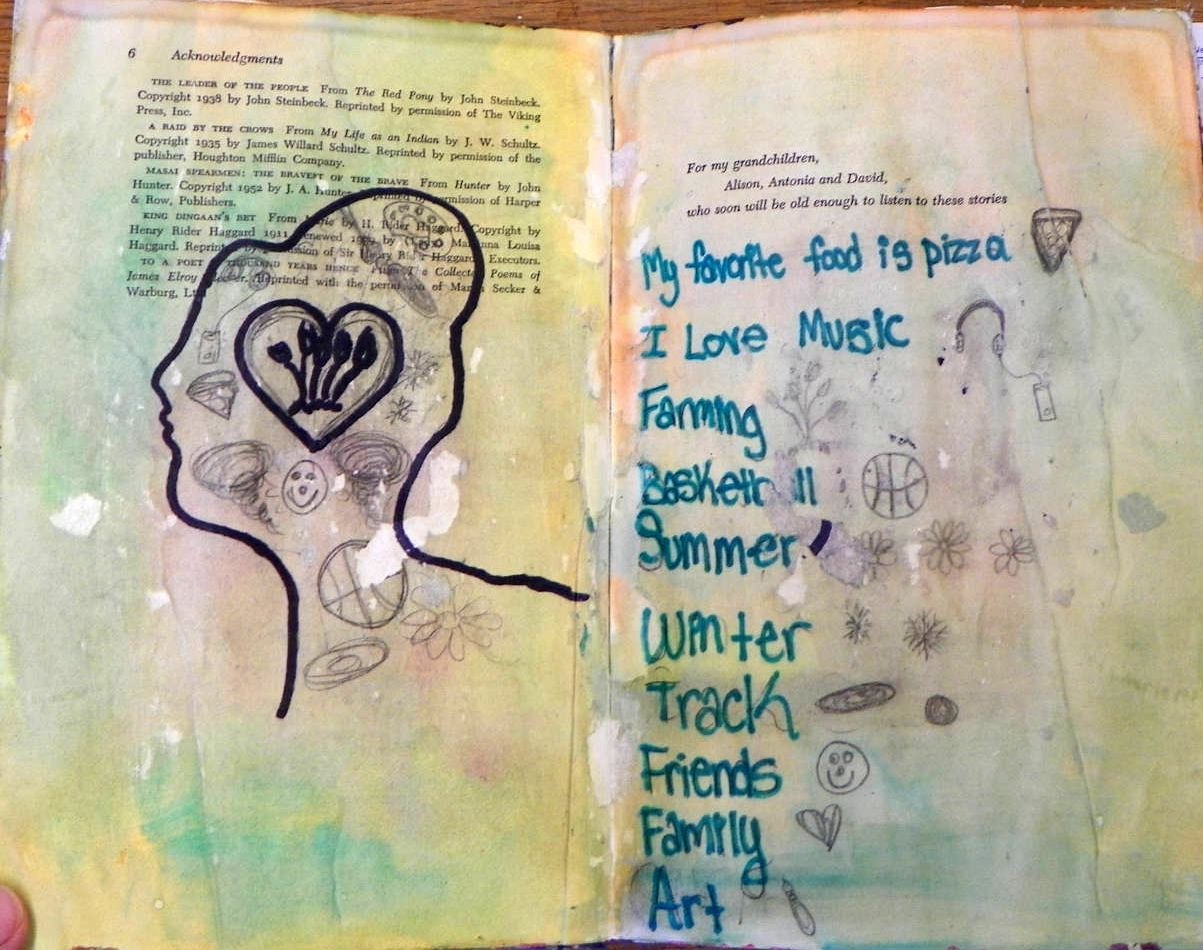 6 Acknowledgments
THE LEADER OF THE PEOPLE From The Red Pony by John Steinbeck.
Copyright 1938 by John Steinbeck. Reprinted by permission of The Viking
Press, Inc.
A RAID BY THE CROWS From My Life as an Indian by J. W. Schultz.
Copyright 1935 by James Willard Schultz. Reprinted by permission of the
publisher, Houghton Mifflin Company.
MASAI SPEARMEN: THE BRAVEST OF THE BRAVE From Hunter by John
Hunter. Copyright 1952 by J. A. Hunter. permission of Harper
& Row, Publishers.
KING DINGAAN'S BET From by H. Rider Haggard. Copyright by
Henry Rider Haggard 1911, renewed by Louisa
Haggard. of Sir Haggard Executors.
TO A POET THOUSAND YEARS HENCE From The Collected Poems of
James Elroy Reprinted with the of Secker &
Warburg,
For my grandchildren,
Alison, Antonia and David,
who soon will be old enough to listen to these stories
My favorite food is pizza
I Love Music
Farming
Summer
Winter
Track
Friends
Family
Art